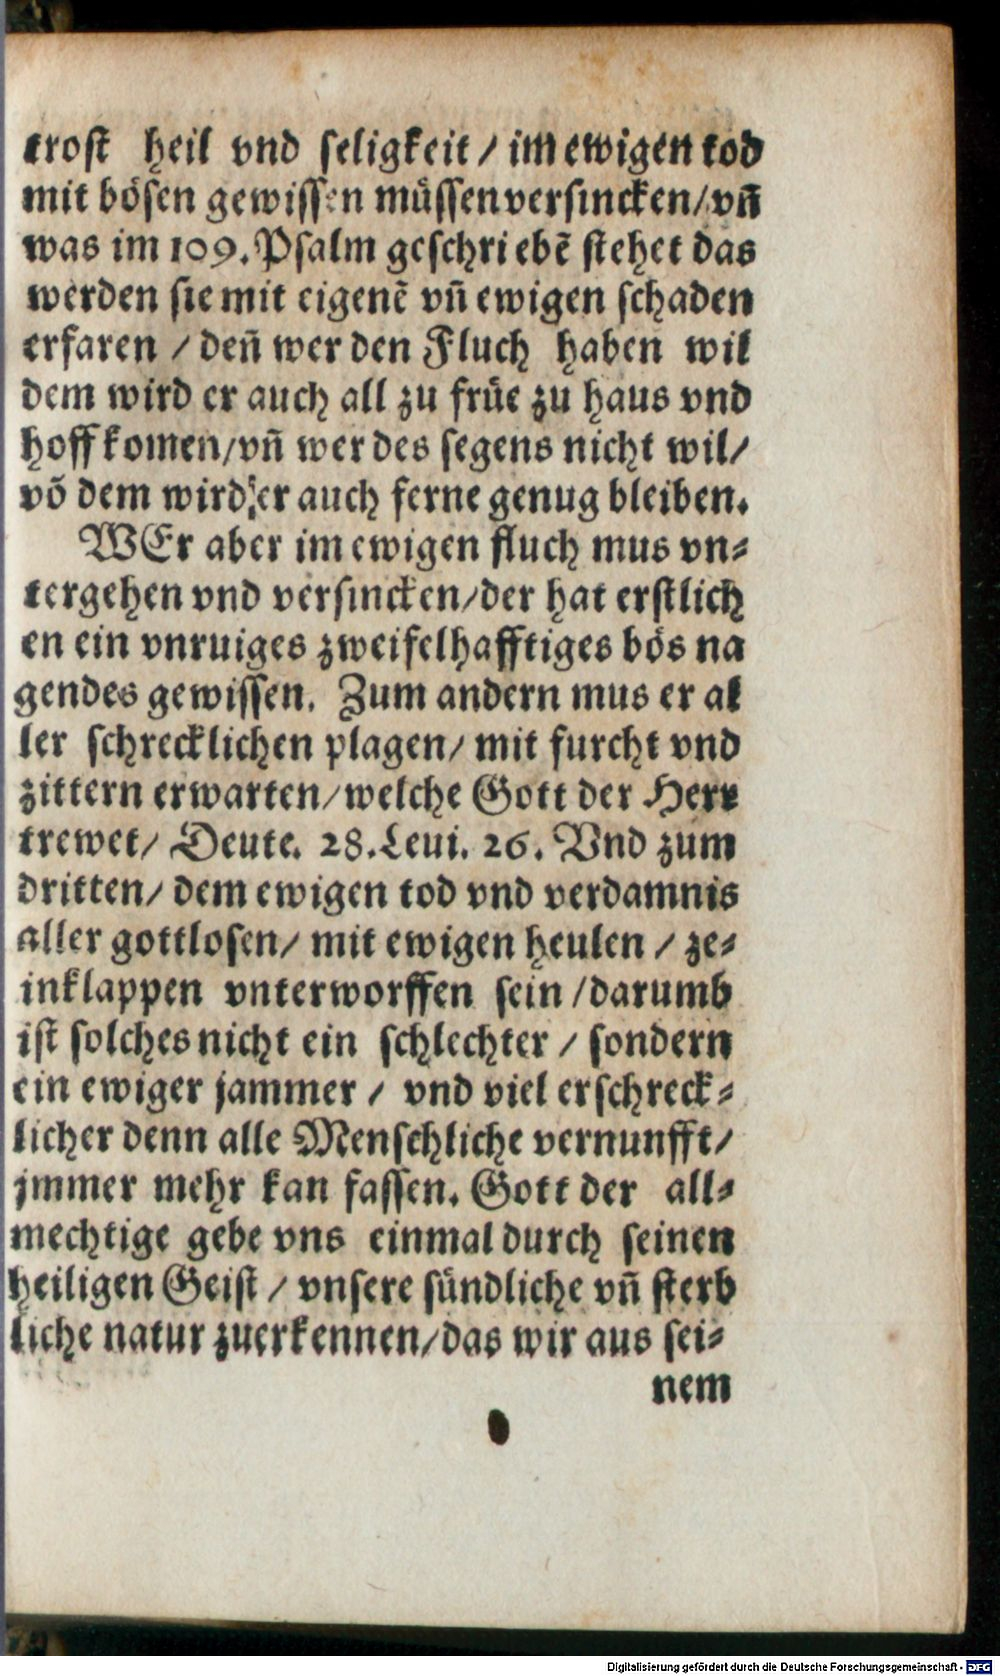 trost heil vnd seligkeit / im ewigen tod
mit bösen gewissen müssen versincken/ vñ
was im 109. Psalm geschriebẽ stehet das
werden sie mit eigenẽ vñ ewigen schaden
erfaren / deñ wer den Fluch haben wil
dem wird er auch all zu früe zu haus vnd
hoff komen/vñ wer des segens nicht wil/
võ dem wird er auch ferne genug bleiben.
WEr aber im ewigen fluch mus vn-
tergehen vnd versincken/der hat erstlich
en ein vnruiges zweifelhafftiges bös na
gendes gewissen. Zum andern mus er al
ler schrecklichen plagen/ mit furcht vnd
zittern erwarten/welche Gott der Herr
trewet/ Deute. 28. Leui. 26. Vnd zum
dritten/ dem ewigen tod vnd verdamnis
aller gottlosen/ mit ewigen heulen / ze-
inklappen vnterworffen sein /darumb
ist solches nicht ein schlechter / sondern
ein ewiger jammer / vnd viel erschreck-
licher denn alle Menschliche vernunfft/
jmmer mehr kan fassen. Gott der all-
mechtige gebe vns einmal durch seinen
heiligen Geist / vnsere sündliche vñ sterb
liche natur zuerkennen/das wir aus sei-
nem
Digitalisierung gefördert durch die Deutsche Forschungsgemeinschaft - DFG